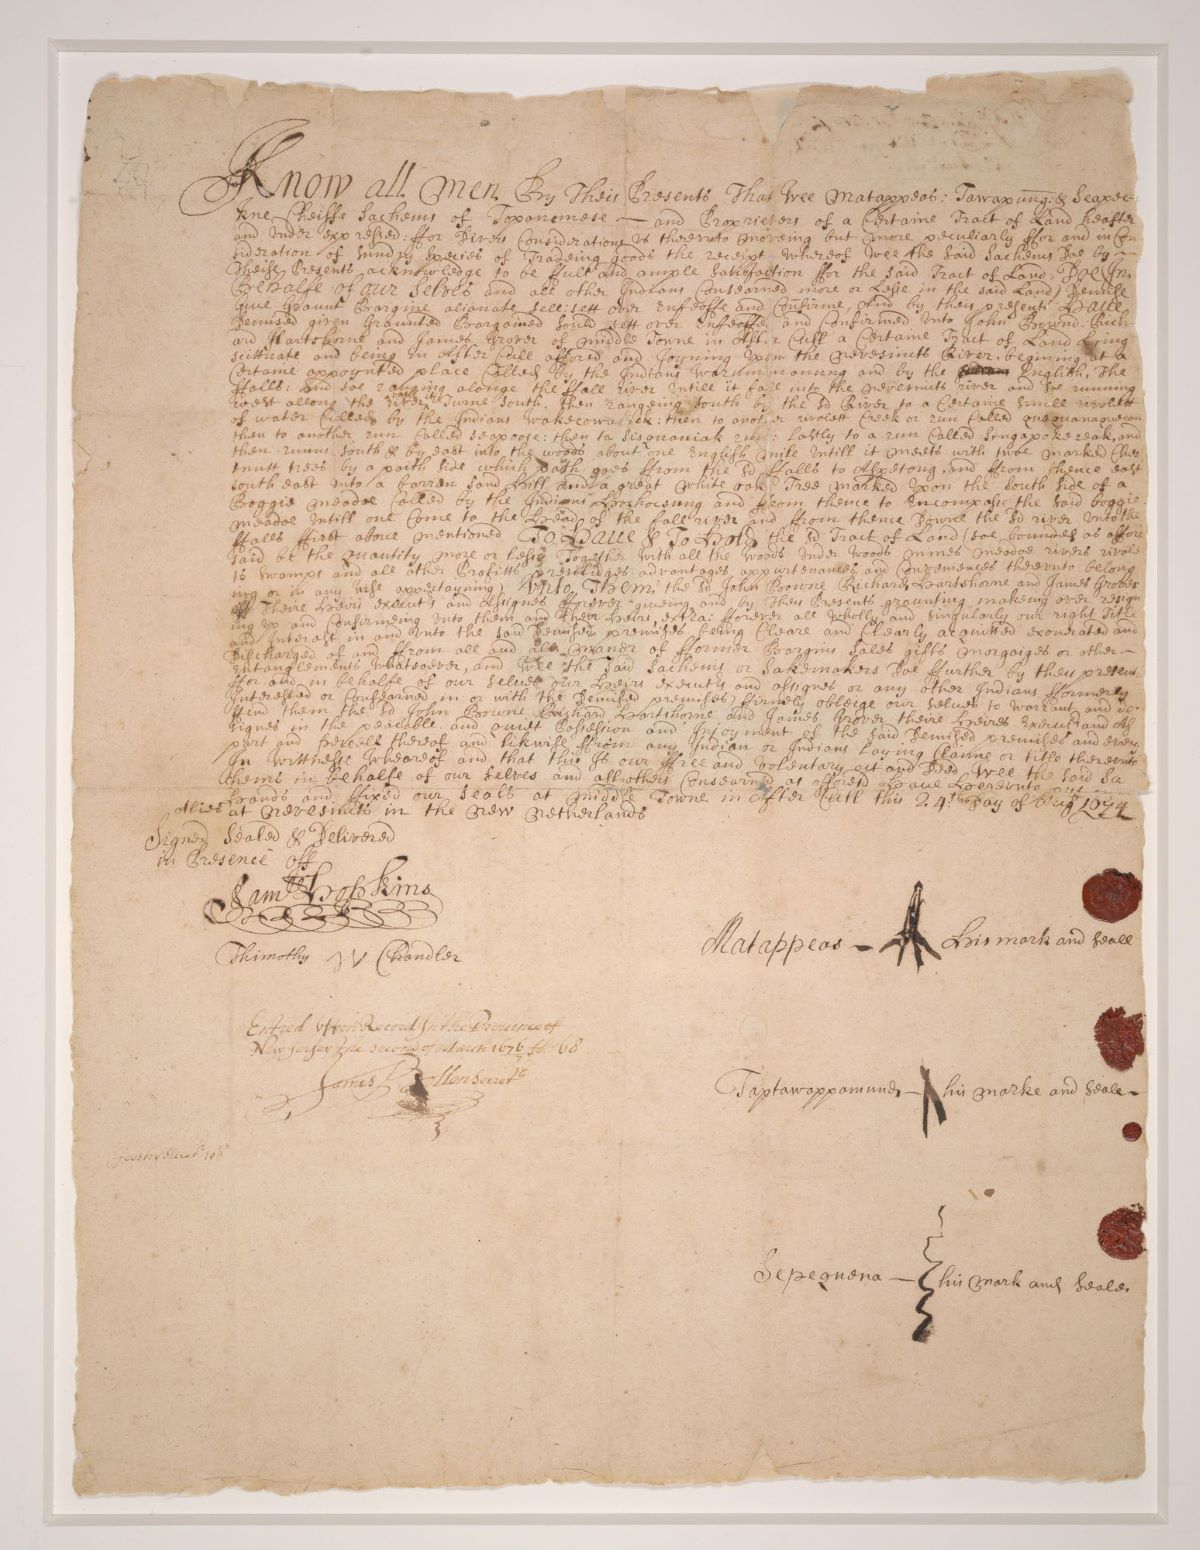 Know all men By Theis Presents That Wee Matappeas: Tawapung: & Seapec
kne Cheiffe Sachems of Toponemese — and Proprieters of a Certaine Tract of Land heafter
and under expressed: ffor Divers Considerations us thereunto moveing but more peculiarly ffor and in Con
sideration of sundry species of Tradeing goods the receipt whereof wee the said Sachems Doe by
Theise Presents acknowledge to be full and ample satisfaction ffor the said Tract of Land; Doe In
Behalfe of our selves and all other Indians Consearned more or Lesse in the said Land Demise
give Graunt Bargine alianate sell: sett over Enfeoffe and Confirme, And by theis presents Have
Demised given Graunted Bargained sould sett over Enffeoffed and Confirmed unto John Bowne Rich
ard Hartshorne and James Grover of middle Towne in After Cull a Certaine Tract of Land Lying
scittuate and being in After Cull afforsd and Joyning upon the nevesincts River, begining at a
Certaine appoynted place Called by the Indians warummanung and by the English, The
ffalls: and soe rainging alonge the ffall river untill it fall into the nevesincts river and soe running
west allong the river turne south, then rangeing south by the sd River to a Certaine smell rivolett
of water Called by the Indians wakecowasick: then to another rivolett Creek or run Called
then to another run Called seapoose: then to sisquaniak run: Lastly to a run Called singapokezeak, and
then runns south & by east into the woods about one English mile untill it meets with two marked Ches
tnutt trees by a path side which path goes ffrom the sd ffalls to and from thence east
south east unto a barren sand hill and a great white oak Tree marked upon the south side of a
Boggie meadoe Called by the Indians hochocsung and ffrom thence to Incompase the said boggie
meadoe untill one Come to the head of the fall river and ffrom thence Downe the sd river unto the
ffalls first above mentioned To Have & To Hold the sd Tract of Land soe bounded as affore
said be the quantity more or Lesse Together with all the woods under woods mines meadoe rivers rivole
ts swamps and all other Profitts previlidges advantages appurtenances and Conveniences thereunto belong
ing or in any wise appertayning unto Them the sd John Bowne Richard Hartshorne and James Grover
Theire heirs execut's and Assignes fforever giveing and by theis Presents graunting making over resign
ing up and Confirmeing unto them and their heirs, fforever all wholly and singularly our right Title
and Interest in and unto the said Demised premises being Cleare and Clearly acquitted exonerated and
Discharged of and ffrom all and all maner of fformer Bargins sales gifts morgaiges or other —
Entanglements whatsoever, and wee the said sachems or sakemakers Doe ffurther by theis present
ffor and in behalfe of our selves our heirs execut's and assignes or any other Indians fformerly
Interested or Consearned in or with the Demised premises ffirmely obleige our selves to warrant and de
ffend them the sd John Bowne Richard Hartshorne and James Grover theire heires Execut' and As
signes in the peacable and quiet Possession and Injoyment of the said Demised premises and every
part and percell thereof and likwise ffrom any Indian or Indians Laying Claime or title thereunto
In wittnesse whereof and that this Is our ffree and voluntary act and Deed wee the said Sa
chems in behalfe of our selves and all others Consearned as afforesd have hereunto
hands and ffixed our seals at middle Towne in After Cull this 24 day of
alies at nevesincts in the new netherlands
Signed Sealed & Delivered
in Presence off
Saml Hopkins
Thimothy Chandler
Matappeas — his mark and seall
Entred upon Record In the Province of
New Jersey the second of March 1676 fol: 68
James Bollen Secret
Taptawappamund — his marke and seale
Sepequena — his mark and seale